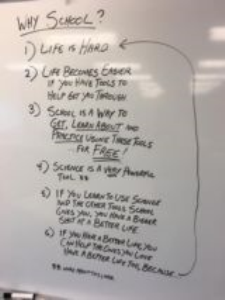 WHY SCHOOL?
1) LIFE IS HARD
2) LIFE BECOMES EASIER
IF YOU HAVE TOOLS TO
HELP GET YOU THROUGH
3) SCHOOL IS A WAY TO
GET, LEARN ABOUT AND
PRACTICE USING THESE TOOLS
... FOR FREE!
4) SCIENCE IS A VERY POWERFUL
TOOL **
5) IF YOU LEARN TO USE SCIENCE
AND THE OTHER TOOLS SCHOOL
GIVES YOU, YOU HAVE A BIGGER
SHOT AT A BETTER LIFE
6) IF YOU HAVE A BETTER LIFE, YOU
CAN HELP THE ONES YOU LOVE
HAVE A BETTER LIFE TOO, BECAUSE